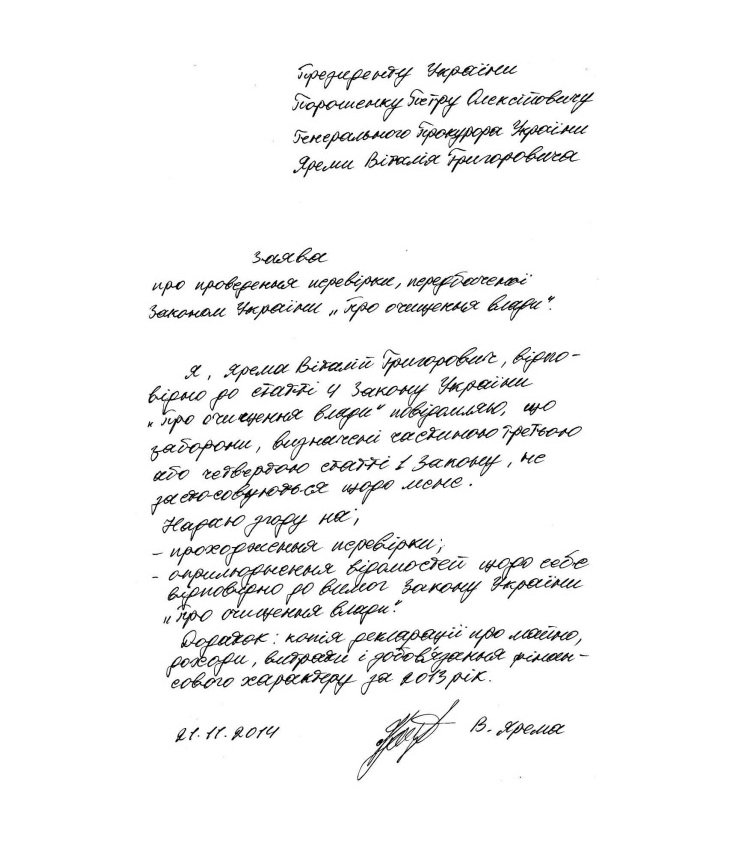 Президенту України
Порошенку Петру Олексійовичу
Генерального Прокурора України
Яреми Віталія Григоровича
Заява
про проведення перевірки, передбаченої
Законом України „Про очищення влади".
Я, Ярема Віталій Григорович, відпо-
відно до статті 4 Закону України
„Про очищення влади" повідомляю, що
заборони, визначені частиною третьою
або четвертою статті 1 Закону, не
застосовуються щодо мене.
Надаю згоду на:
- проходження перевірки;
- оприлюднення відомостей щодо себе
відповідно до вимог Закону України
„Про очищення влади".
Додаток: копія декларації про майно,
доходи, витрати і зобов'язання фінан-
сового характеру за 2013 рік.
21.11.2014 В. Ярема